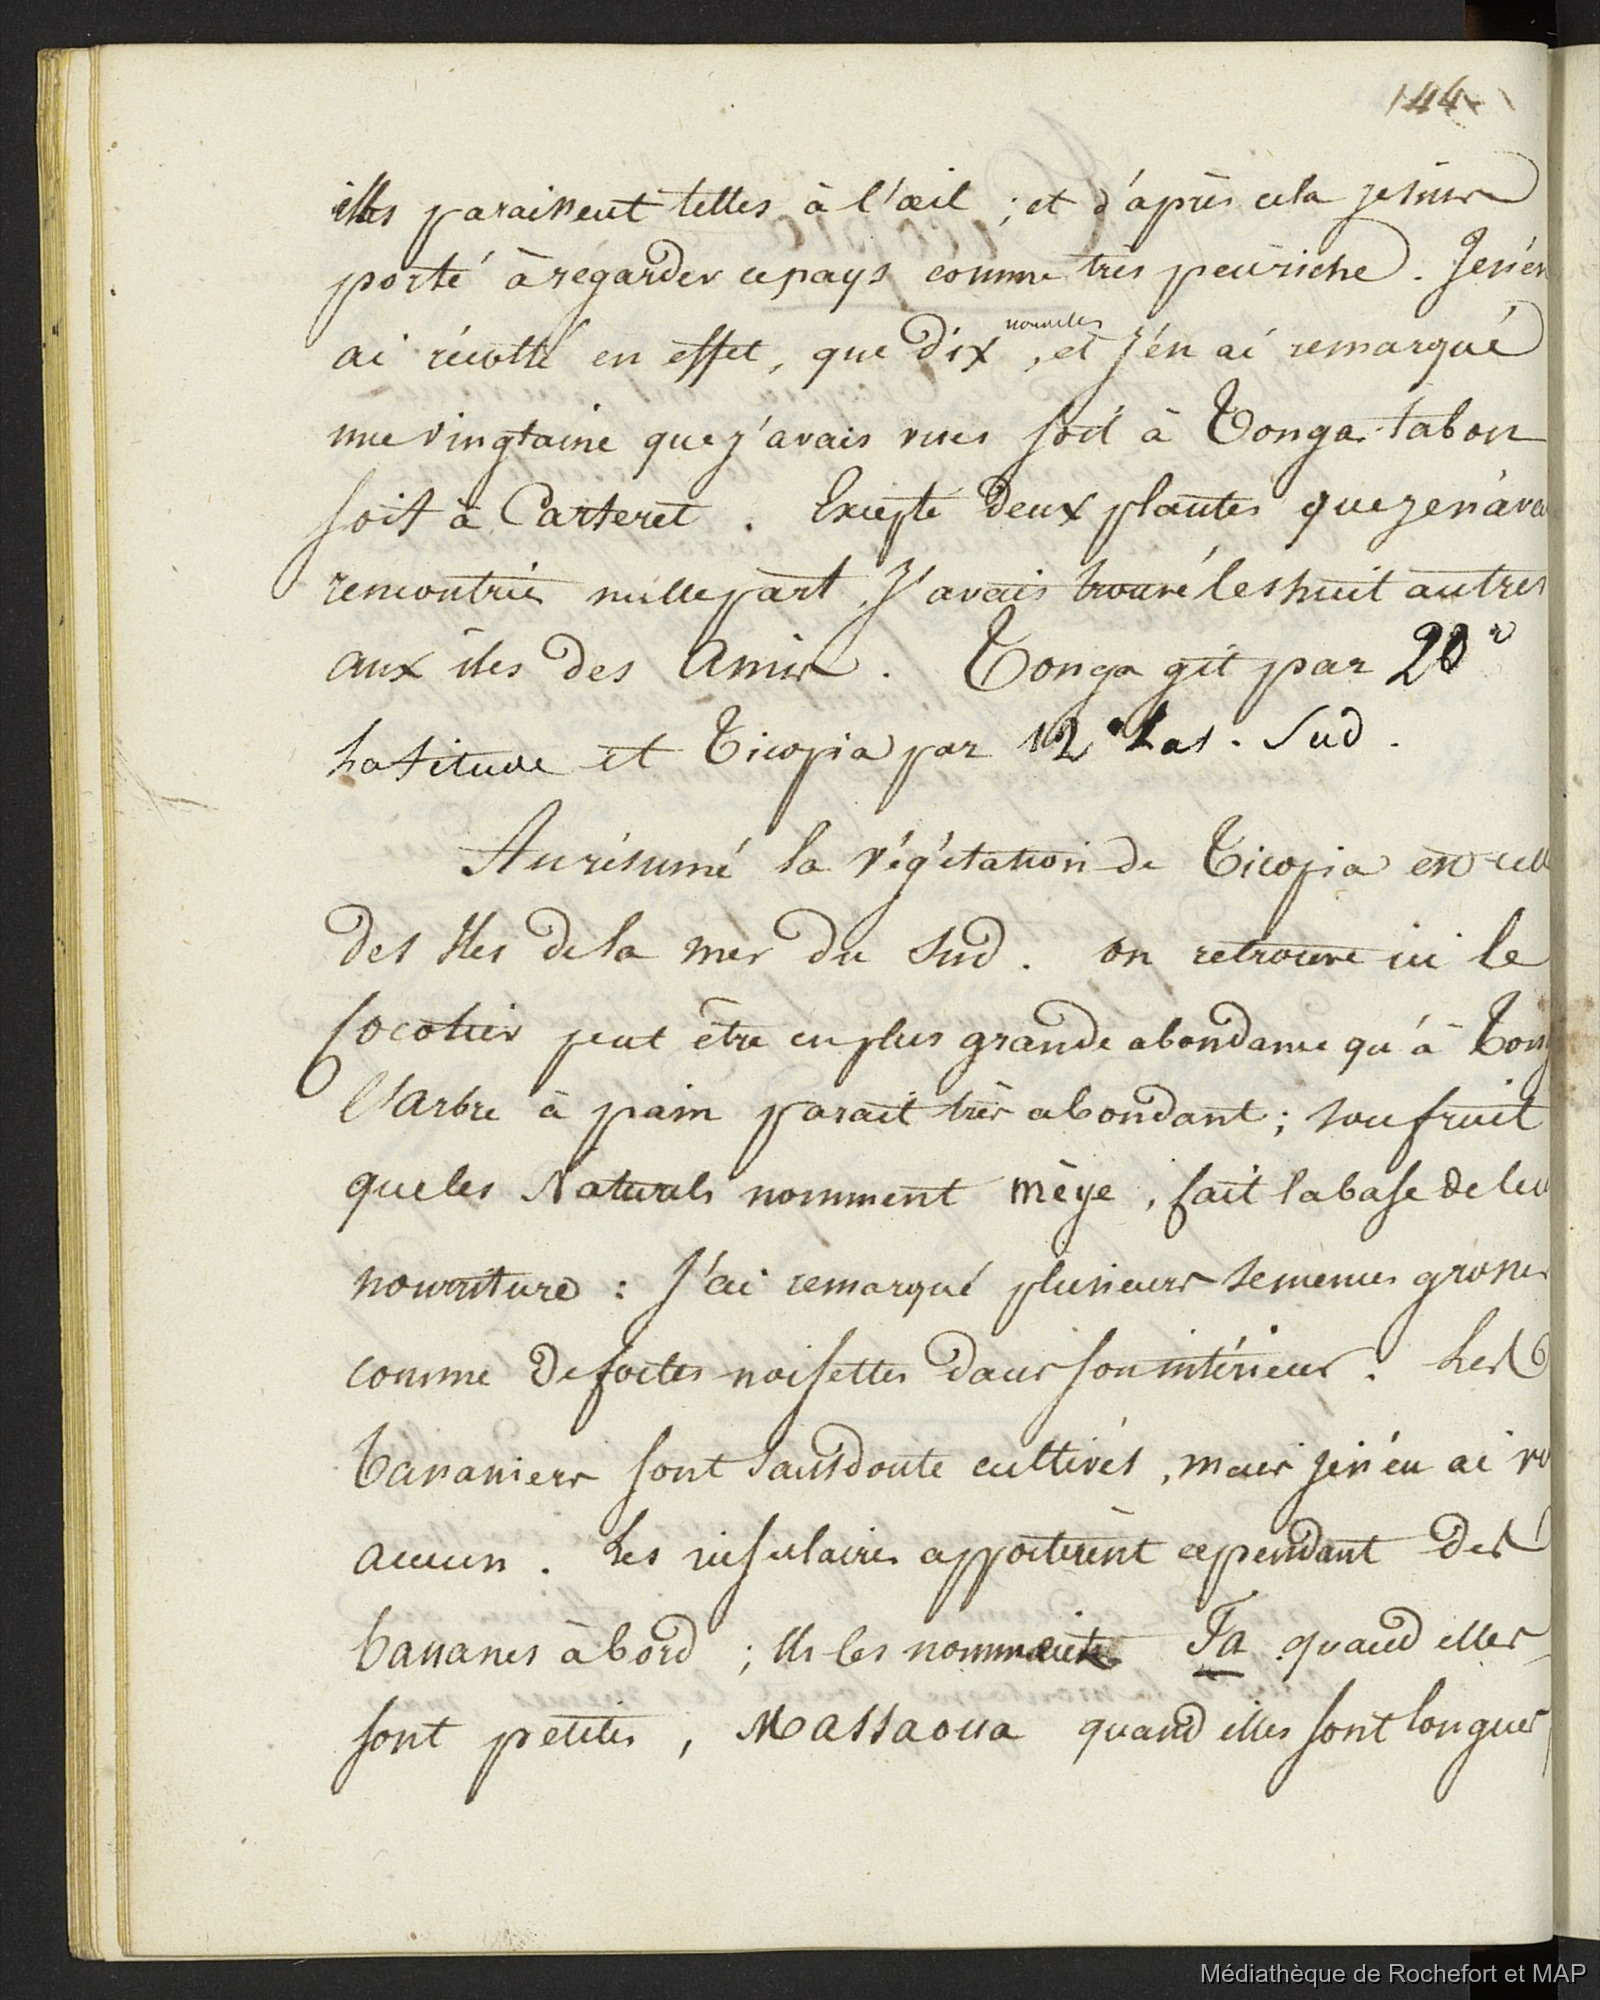 144
elles paraissent telles à l'œil ; et d'après cela je suis
porté à regarder ce pays comme très peu riche. Je n'en
ai récolté en effet, que dix nouvelles, et j'en ai remarqué
une vingtaine que j'avais vues soit à Tonga-tabou
soit à Carteret. Excepté deux plantes que je n'ava
rencontrées nulle part, J'avais trouvé les huit autres
aux îles des Amis. Tonga gît par 20°
Latitude et Ticopia par 12° Lat. Sud.
Au résumé la végétation de Ticopia est cell
des Iles de la mer du Sud. on retrouve ici le
Cocotier peut être en plus grande abondance qu'à Tong
L'arbre à pain parait très abondant ; son fruit
que les Naturels nomment mèye, fait la base de leu
nourriture : J'ai remarqué plusieurs semences grosses
comme de fortes noisettes dans son intérieur. Les
bananiers sont sans doute cultivés, mais je n'en ai vu
aucun. Les insulaires apportèrent cependant des
bananes à bord ; Ils les nommaient Fa quand elles
sont petites, Massaoua quand elles sont longues
Médiathèque de Rochefort et MAP